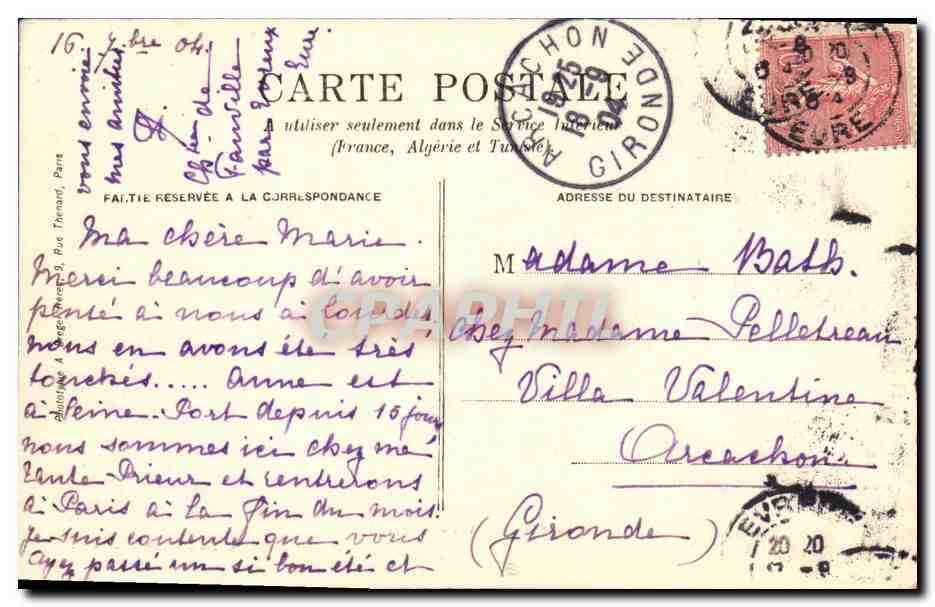 16 7bre 04.
Chau de
Fanville
par Evreux
Eure
CARTE POSTALE
A utiliser seulement dans le Service Intérieur
(France, Algérie et Tunisie)
PARTIE RÉSERVÉE A LA CORRESPONDANCE
Ma chère Marie.
Merci beaucoup d'avoir
pensé à nous à Lourdes
nous en avons été très
touchés..... Anne est
à Seine-Port depuis 15 jours
nous sommes ici chez ma
tante Prieur et rentrerons
à Paris à la fin du mois.
Je suis contente que vous
ayez passé un si bon été et
vous envoie
mes amitiés
ADRESSE DU DESTINATAIRE
Madame Bath.
chez Madame Pelletreau
Villa Valentine
Arcachon
(Gironde)
ARCACHON
19 25
18 -9
04
GIRONDE
EVREUX
EURE
EVR
20 20
Rue Thenard, Paris
CPAPHIL